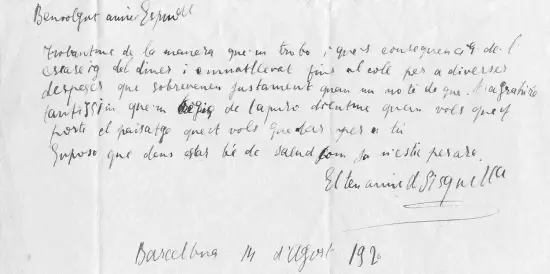 Benvolgut amic Espinell
Trobantme de la manera que'm trobo i que's consequencia de l'
escaseig del diners i enmatllevat fins al coll per a diverses
despeses que sobrevenen justament quan un no té de que. T'agrairia
tantissim que'm de l'apuro dientme quan vols que't
porti el paisatge que't vols quedar per a tu
Suposo que deus estar bé de salud com jo n'estic per ara.
El teu amic d Sisquella
Barcelona 14 d'Agost 192